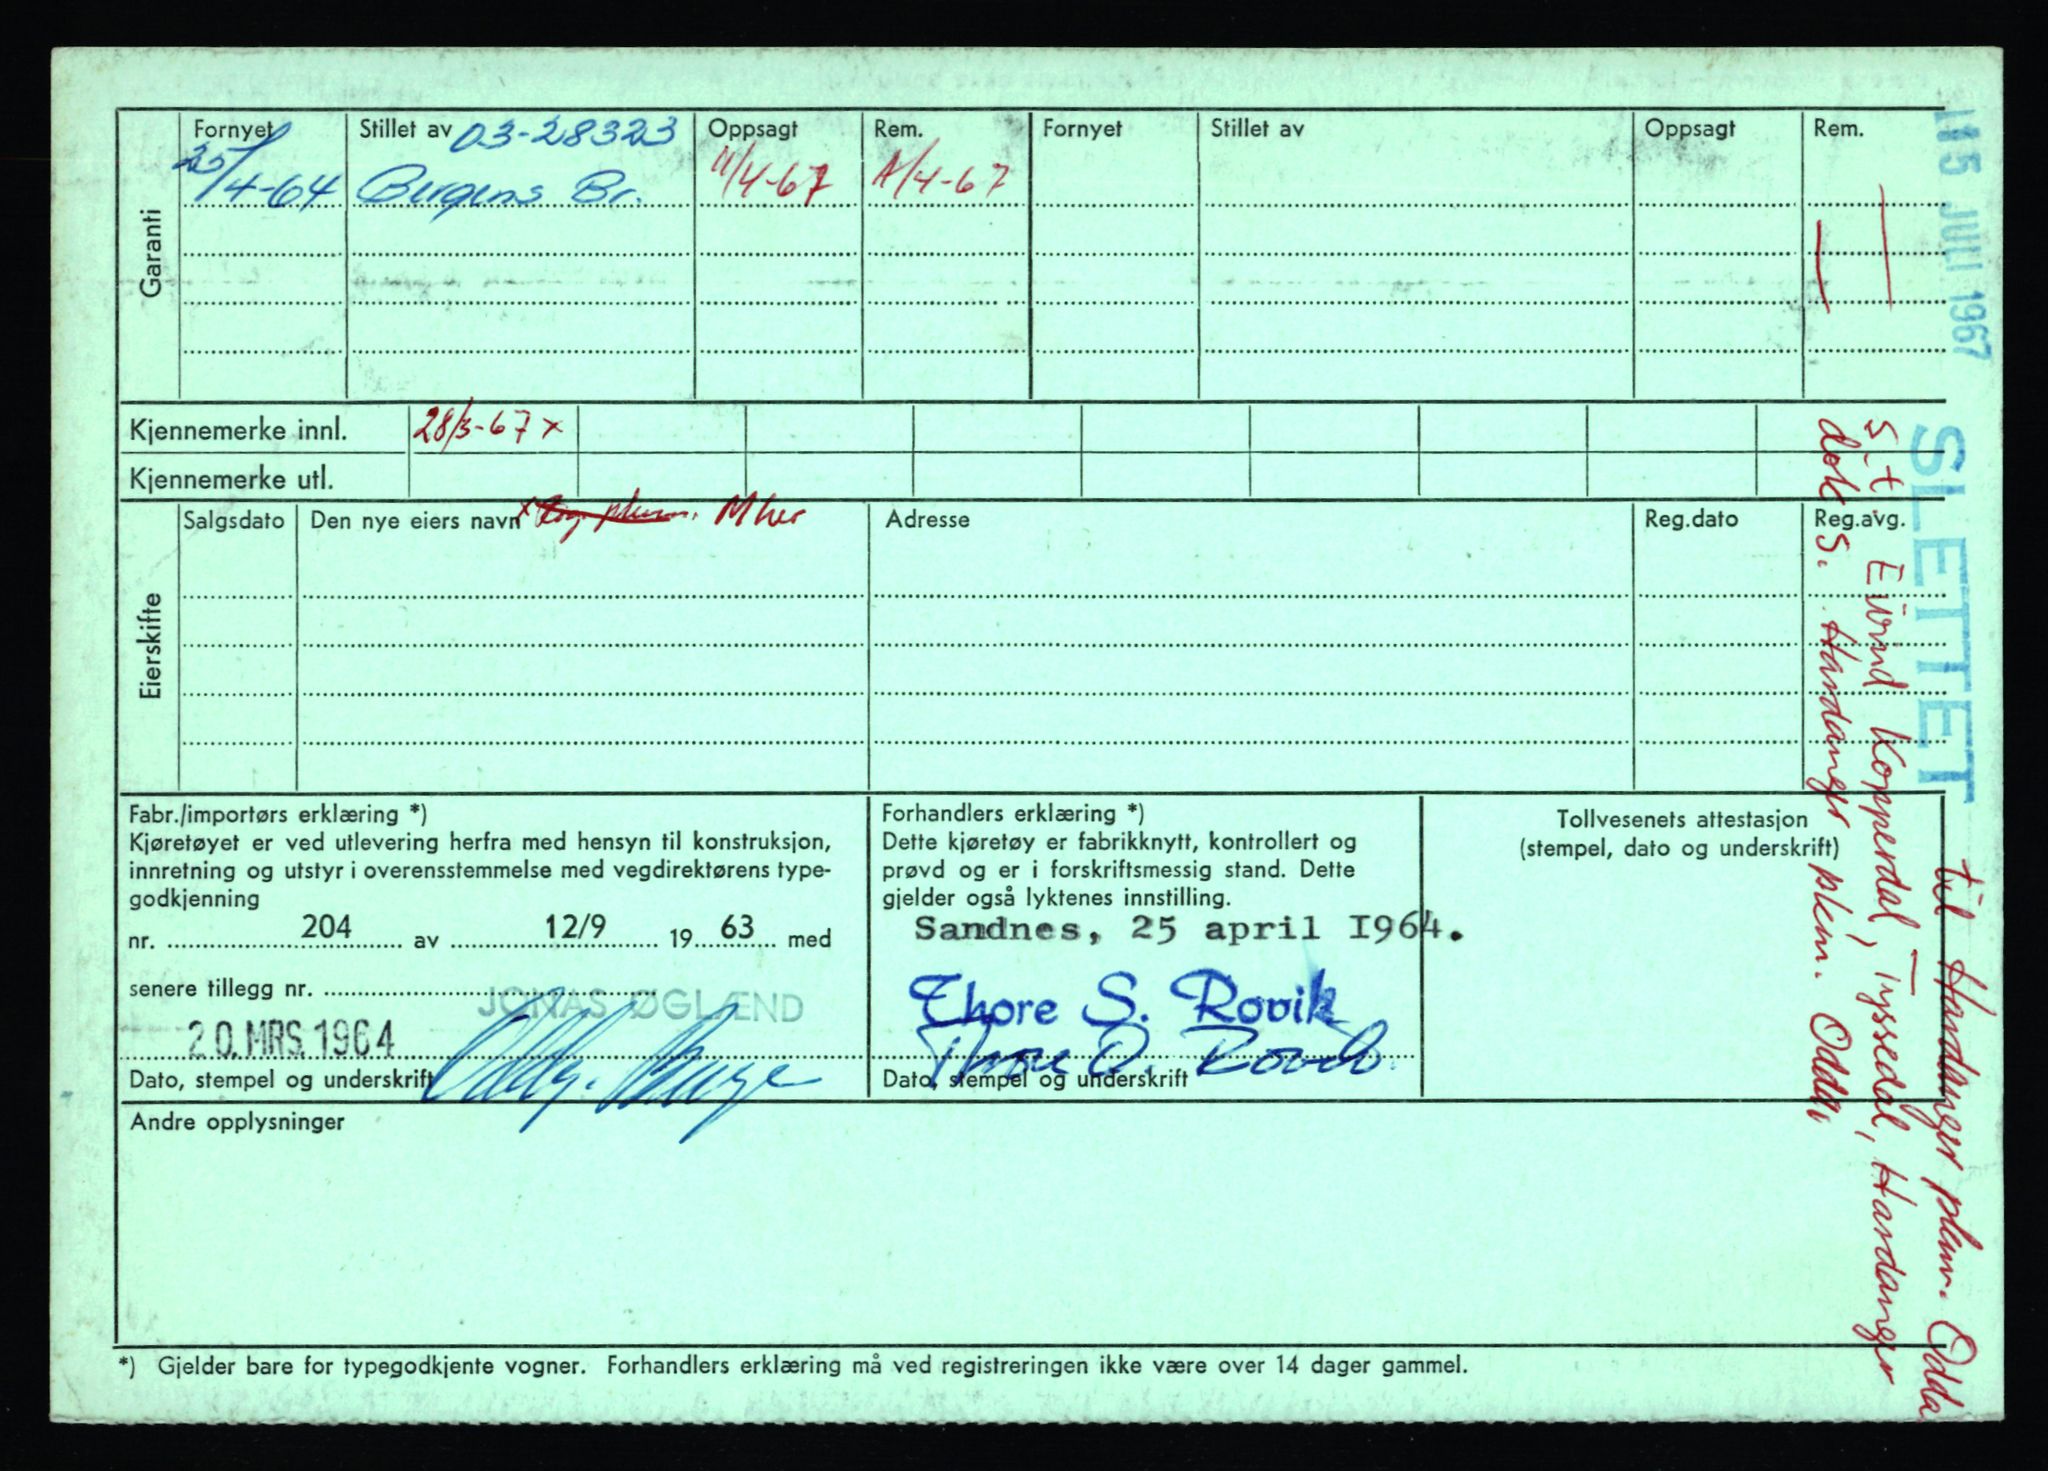 Garanti
Fornyet Stillet av 03-28323 Oppsagt Rem. Fornyet Stillet av Oppsagt Rem.
25/4-64 Bergens Br. 11/4-67 11/4-67
Kjennemerke innl. 28/3-67 x
Kjennemerke utl.
Eierskifte
Salgsdato Den nye eiers navn x Adresse Reg.dato Reg.avg.
Fabr./importørs erklæring *)
Kjøretøyet er ved utlevering herfra med hensyn til konstruksjon,
innretning og utstyr i overensstemmelse med vegdirektørens type-
godkjenning
nr. 204 av 12/9 19 63 med
senere tillegg nr.
JONAS ØGLÆND
20. MRS. 1964
Dato, stempel og underskrift
Forhandlers erklæring *)
Dette kjøretøy er fabrikknytt, kontrollert og
prøvd og er i forskriftsmessig stand. Dette
gjelder også lyktenes innstilling.
Sandnes, 25 april 1964.
Thore S. Rovik
Dato, stempel og underskrift
Tollvesenets attestasjon
(stempel, dato og underskrift)
Andre opplysninger
*) Gjelder bare for typegodkjente vogner. Forhandlers erklæring må ved registreringen ikke være over 14 dager gammel.
JULI 1967
SLETTET
til Hardanger pkm. Odda
s.t. Eivind Kopperdal, Tyssedal, Hardanger
dok s. Hardanger pkm. Odda,